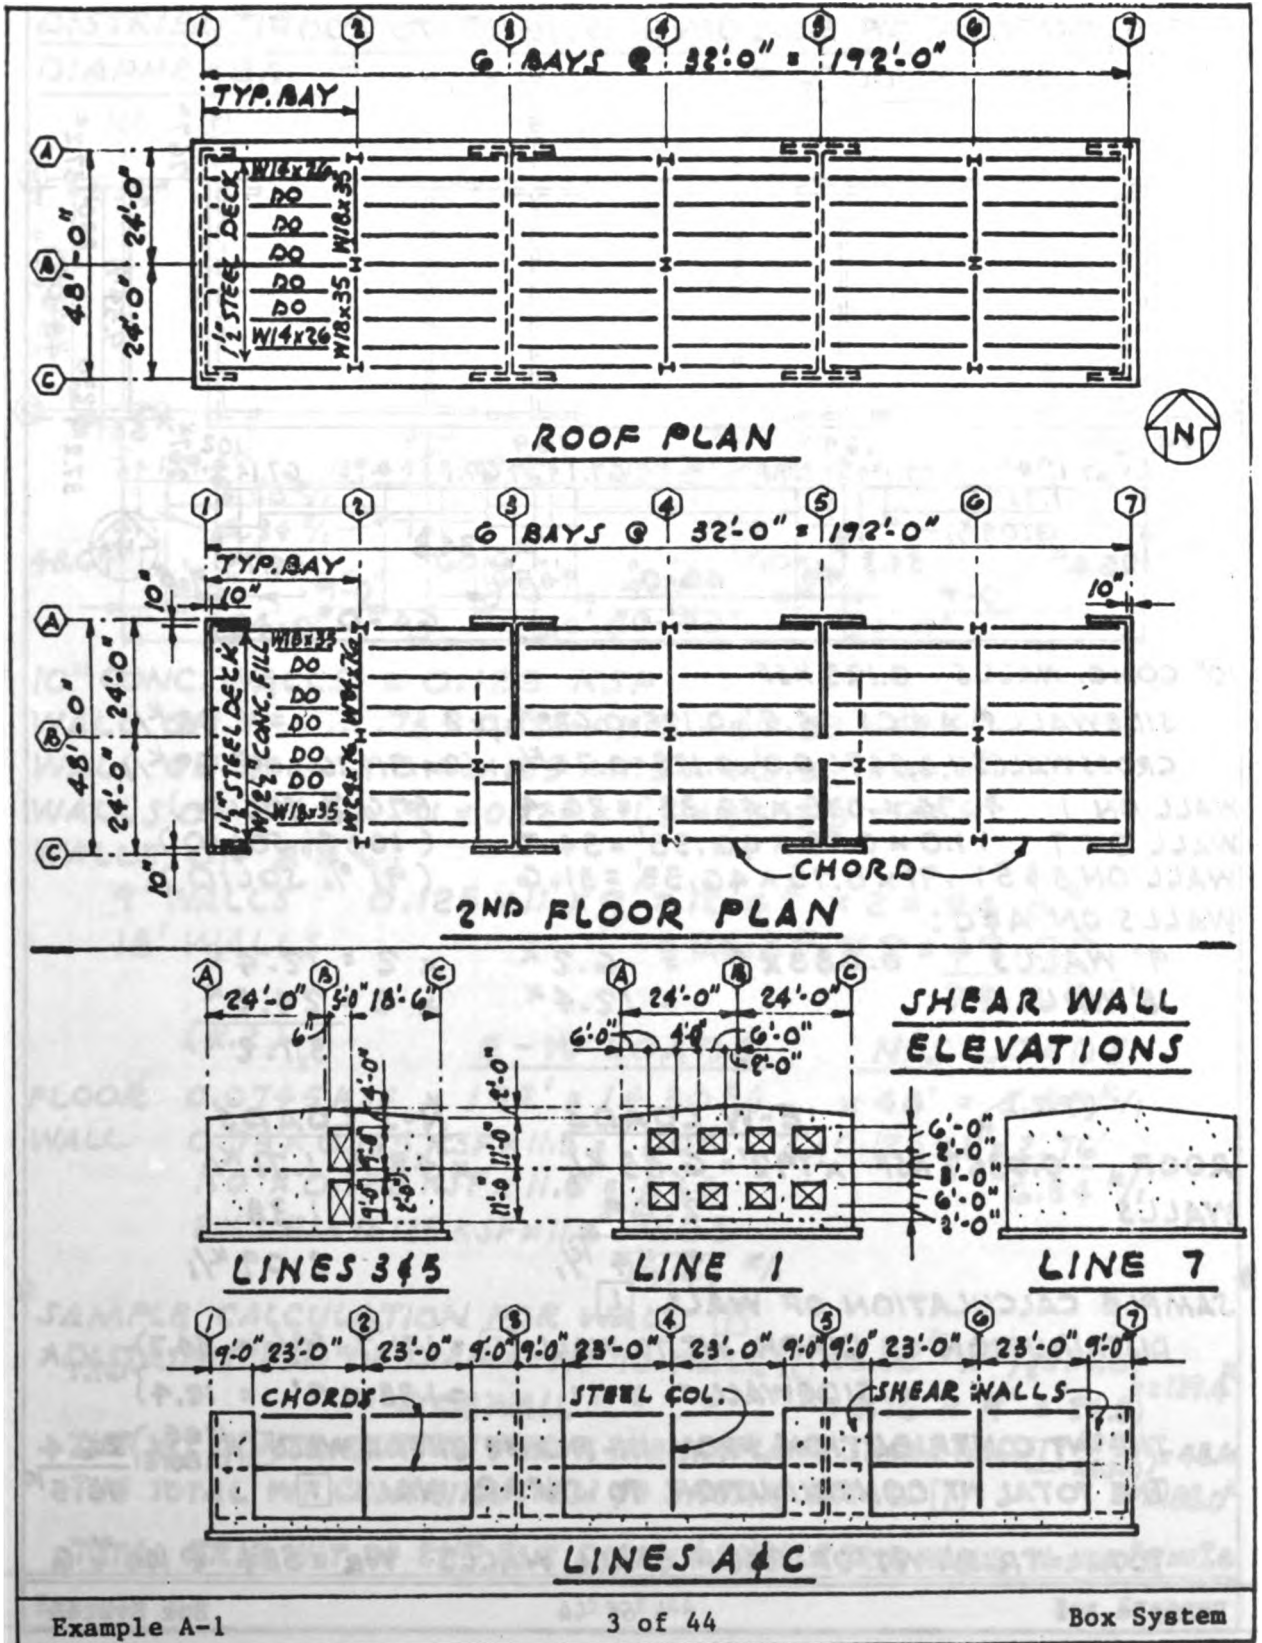 1 2 3 4 5 6 7
6 BAYS @ 32'-0" = 192'-0"
TYP. BAY
A
B
C
48'-0"
24'-0"
24'-0"
1½" STEEL DECK
W14x26
DO
DO
DO
DO
DO
W14x26
W18x35
W18x35
ROOF PLAN
N
1 2 3 4 5 6 7
6 BAYS @ 32'-0" = 192'-0"
TYP. BAY
10"
10"
10"
A
B
C
48'-0"
24'-0"
24'-0"
10"
1½" STEEL DECK
W/2½" CONC. FILL
W18x35
DO
DO
DO
DO
DO
W18x35
W24x76
W24x76
CHORD
2ND FLOOR PLAN
A B C
24'-0" 5'-0" 18'-6"
6"
4'-0"
9'-0"
9'-0"
2'-0"
LINES 3 & 5
A B C
24'-0" 24'-0"
6'-0" 4'-0" 6'-0"
2'-0"
2'-0"
11'-0"
11'-0"
6'-0"
2'-0"
8'-0"
6'-0"
2'-0"
LINE 1
SHEAR WALL
ELEVATIONS
LINE 7
1 2 3 4 5 6 7
9'-0" 23'-0" 23'-0" 9'-0" 9'-0" 23'-0" 23'-0" 9'-0" 9'-0" 23'-0" 23'-0" 9'-0"
CHORDS
STEEL COL.
SHEAR WALLS
LINES A & C
Example A-1
3 of 44
Box System